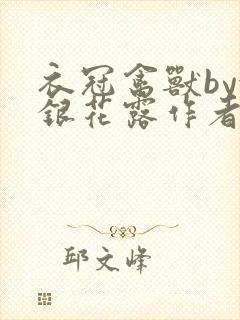 衣冠禽獸by
銀花露作者
邱文峰